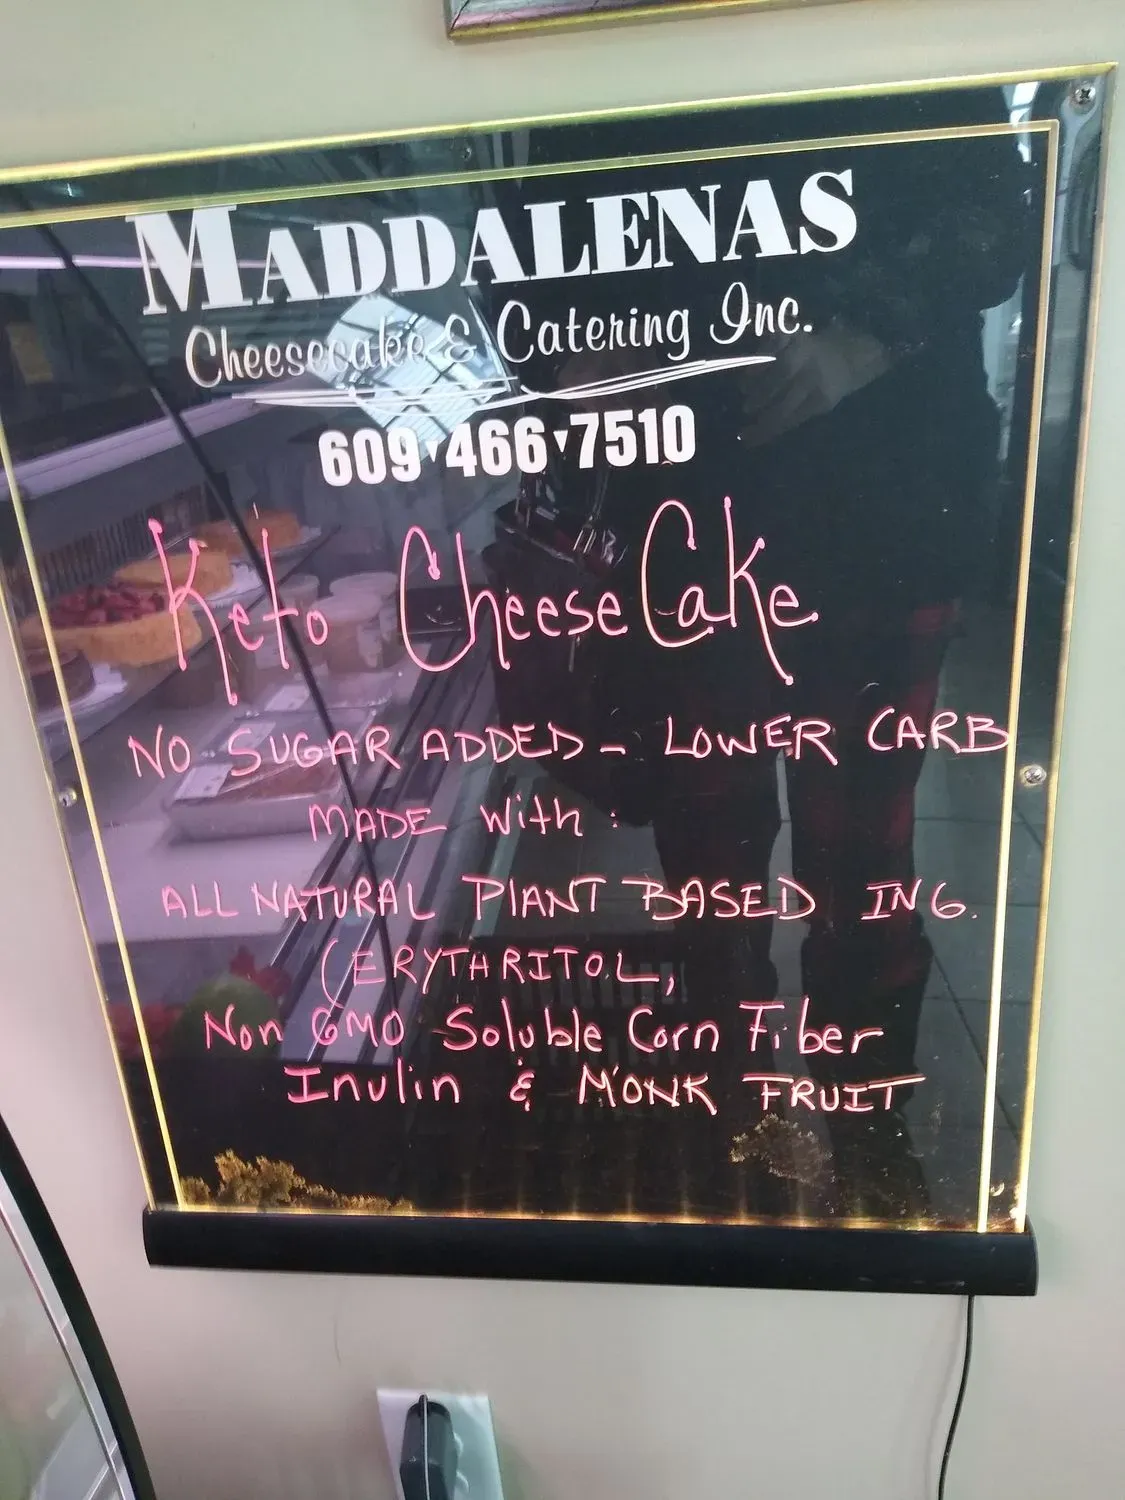 MADDALENAS
Cheesecake & Catering Inc.
609 466 7510
Keto CheeseCake
NO SUGAR ADDED - LOWER CARB
MADE with:
ALL NATURAL PLANT BASED ING.
(ERYTHRITOL,
Non GMO Soluble Corn Fiber
Inulin & MONK FRUIT